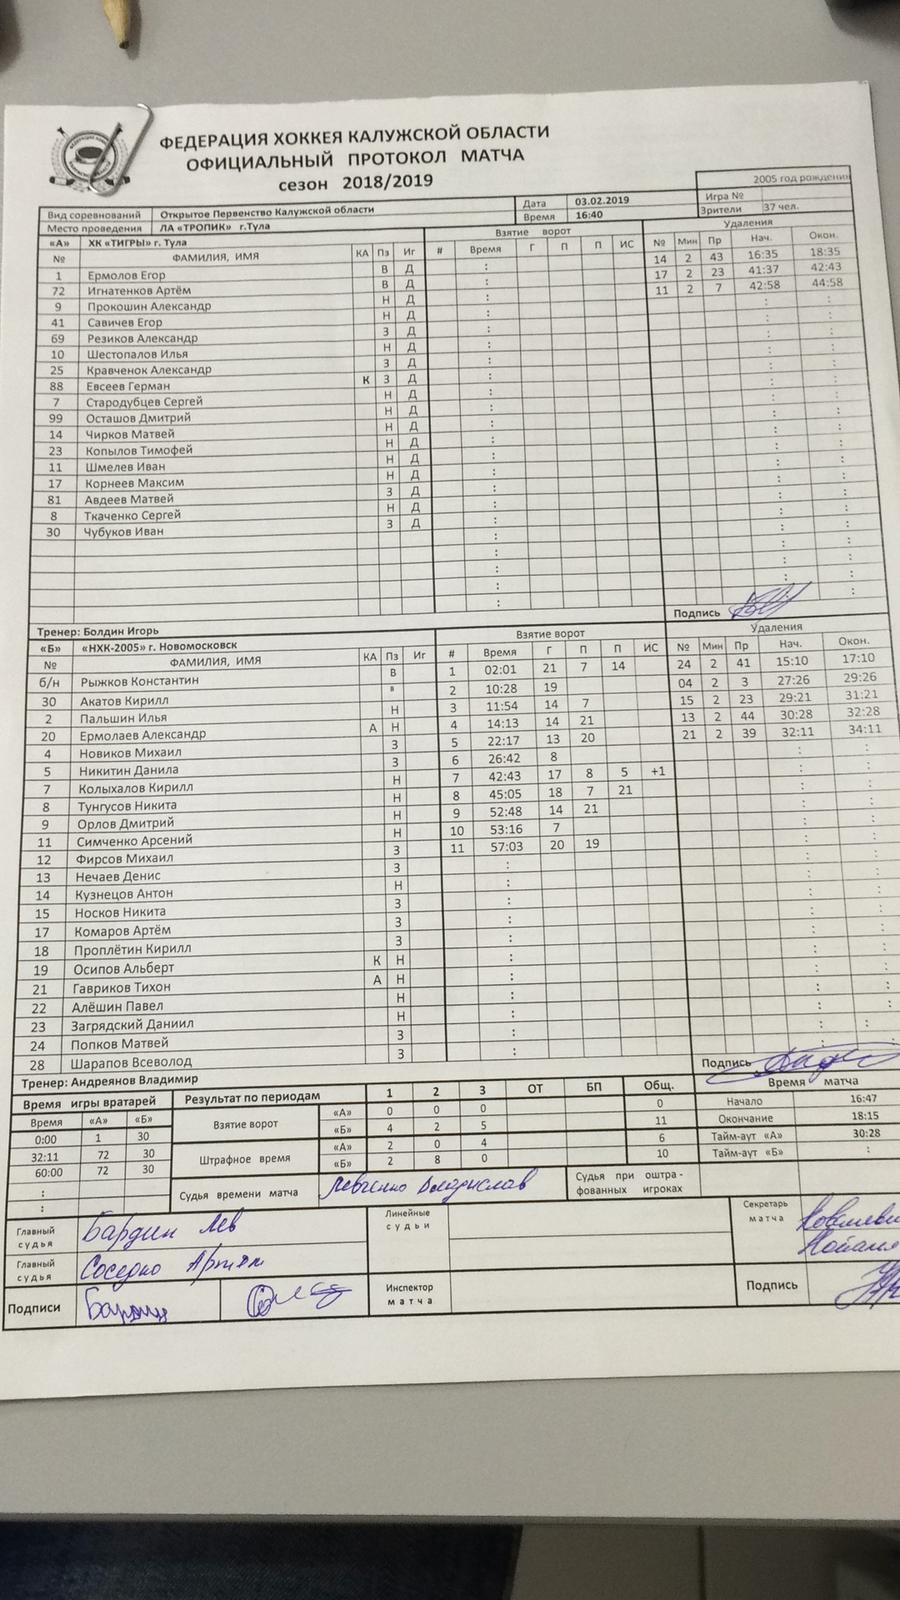 ФЕДЕРАЦИЯ ХОККЕЯ КАЛУЖСКОЙ ОБЛАСТИ
ОФИЦИАЛЬНЫЙ ПРОТОКОЛ МАТЧА
сезон 2018/2019
2005 год рождения
Вид соревнований Открытое Первенство Калужской области Дата 03.02.2019 Игра №
Место проведения ЛА «ТРОПИК» г.Тула Время 16:40 Зрители 37 чел.
«А» ХК «ТИГРЫ» г. Тула Взятие ворот Удаления
№ ФАМИЛИЯ, ИМЯ КА Пз Иг # Время Г П П ИС № Мин Пр Нач. Окон.
1 Ермолов Егор В Д : 14 2 43 16:35 18:35
72 Игнатенков Артём В Д : 17 2 23 41:37 42:43
9 Прокошин Александр Н Д : 11 2 7 42:58 44:58
41 Савичев Егор Н Д : : :
69 Резиков Александр З Д : : :
10 Шестопалов Илья Н Д : : :
25 Кравченок Александр З Д : : :
88 Евсеев Герман К З Д : : :
7 Стародубцев Сергей Н Д : : :
99 Осташов Дмитрий Н Д : : :
14 Чирков Матвей Н Д : : :
23 Копылов Тимофей Н Д : : :
11 Шмелев Иван Н Д : : :
17 Корнеев Максим Н Д : : :
81 Авдеев Матвей З Д : : :
8 Ткаченко Сергей Н Д : : :
30 Чубуков Иван З Д : : :
Тренер: Болдин Игорь Подпись
«Б» «НХК-2005» г. Новомосковск Взятие ворот Удаления
№ ФАМИЛИЯ, ИМЯ КА Пз Иг # Время Г П П ИС № Мин Пр Нач. Окон.
б/н Рыжков Константин В 1 02:01 21 7 14 24 2 41 15:10 17:10
30 Акатов Кирилл в 2 10:28 19 04 2 3 27:26 29:26
2 Пальшин Илья Н 3 11:54 14 7 15 2 23 29:21 31:21
20 Ермолаев Александр А Н 4 14:13 14 21 13 2 44 30:28 32:28
4 Новиков Михаил З 5 22:17 13 20 21 2 39 32:11 34:11
5 Никитин Данила З 6 26:42 8 : :
7 Колыхалов Кирилл Н 7 42:43 17 8 5 +1 : :
8 Тунгусов Никита Н 8 45:05 18 7 21 : :
9 Орлов Дмитрий Н 9 52:48 14 21 : :
11 Симченко Арсений Н 10 53:16 7 : :
12 Фирсов Михаил З 11 57:03 20 19 : :
13 Нечаев Денис З : : :
14 Кузнецов Антон Н : : :
15 Носков Никита З : : :
17 Комаров Артём З : : :
18 Проплётин Кирилл З : : :
19 Осипов Альберт К Н : : :
21 Гавриков Тихон А Н : : :
22 Алёшин Павел Н : : :
23 Загрядский Даниил Н : : :
24 Попков Матвей З : : :
28 Шарапов Всеволод З :
Тренер: Андреянов Владимир Подпись
Время игры вратарей Результат по периодам 1 2 3 ОТ БП Общ. Время матча
Время «А» «Б» Взятие ворот «А» 0 0 0 0 Начало 16:47
0:00 1 30 «Б» 4 2 5 11 Окончание 18:15
32:11 72 30 Штрафное время «А» 2 0 4 6 Тайм-аут «А» 30:28
60:00 72 30 «Б» 2 8 0 10 Тайм-аут «Б» :
: Судья времени матча Левченко Владислав Судья при оштра-
: фованных игроках
Главный судья Бардин Лев Линейные судьи Секретарь матча
Главный судья Соседко Артём
Подписи Инспектор матча Подпись